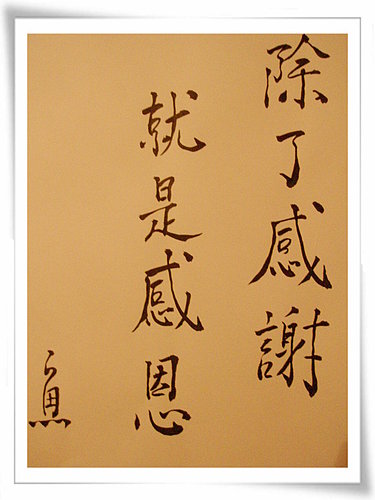 除了感謝
就是感恩